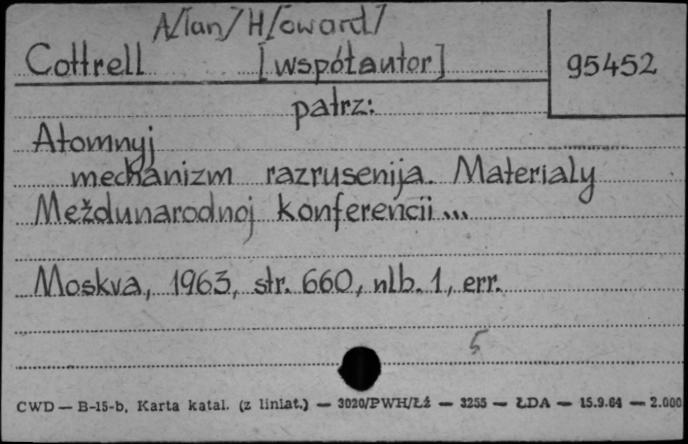 A/lan/ H/oward/
Cottrell [współautor] 95452
patrz:
Atomnyj
mechanizm razrusenija. Materialy
Meždunarodnoj konferencii...
Moskva, 1963, str. 660, nlb. 1, err.
5
CWD — B-15-b, Karta katal. (z liniat.) — 3020/PWH/Łź — 3255 — ŁDA — 15.9.64 — 2.000